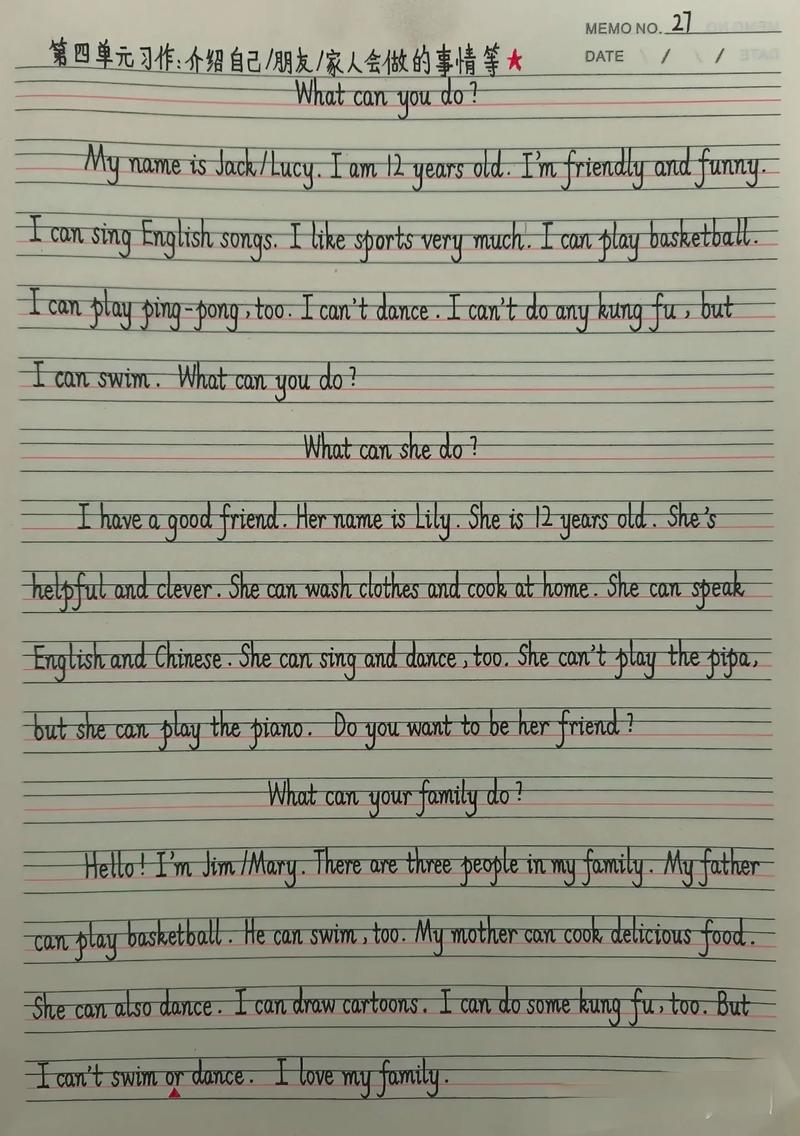 MEMO NO. 27
第四单元习作:介绍自己/朋友/家人会做的事情等★
DATE / /
What can you do?
My name is Jack/Lucy. I am 12 years old. I'm friendly and funny.
I can sing English songs. I like sports very much. I can play basketball.
I can play ping-pong, too. I can't dance. I can't do any kung fu, but
I can swim. What can you do?
What can she do?
I have a good friend. Her name is Lily. She is 12 years old. She's
helpful and clever. She can wash clothes and cook at home. She can speak
English and Chinese. She can sing and dance, too. She can't play the pipa,
but she can play the piano. Do you want to be her friend?
What can your family do?
Hello! I'm Jim/Mary. There are three people in my family. My father
can play basketball. He can swim, too. My mother can cook delicious food.
She can also dance. I can draw cartoons. I can do some kung fu, too. But
I can't swim or dance. I love my family.